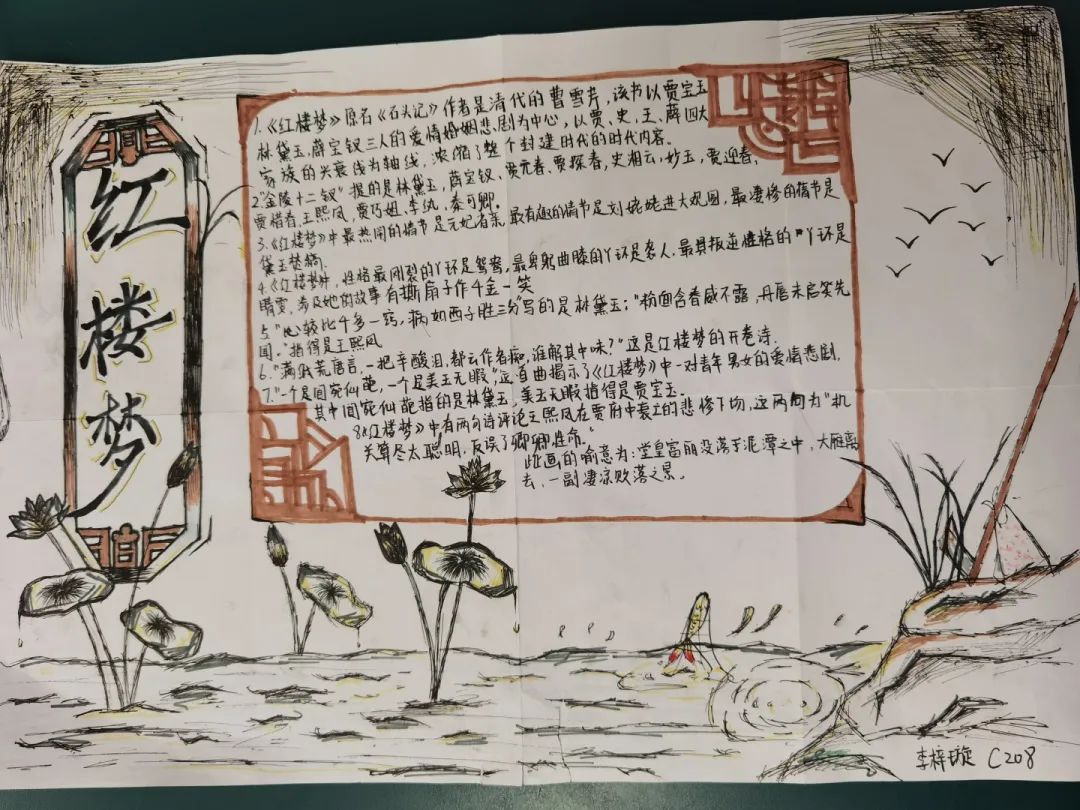 红楼梦
1.《红楼梦》原名《石头记》作者是清代的曹雪芹,该书以贾宝玉
林黛玉,薛宝钗三人的爱情婚姻悲剧为中心,以贾、史、王、薛四大
家族的兴衰线为轴线,浓缩了整个封建时代的时代内容。
2."金陵十二钗"提的是林黛玉,薛宝钗、贾元春、贾探春,史湘云,妙玉,贾迎春,
贾惜春,王熙凤,贾巧姐,李纨,秦可卿。
3.《红楼梦》中最热闹的情节是元妃省亲,最有趣的情节是刘姥姥进大观园,最凄惨的情节是
黛玉焚稿。
4.《红楼梦》中,性格最刚烈的丫环是鸳鸯,最卑躬曲膝的丫环是袭人,最具叛逆性格的丫环是
晴雯,涉及她的故事有撕扇子作千金一笑
5."心较比干多一窍,病如西子胜三分"写的是林黛玉;"粉面含春威不露,丹唇未启笑先
闻。"指得是王熙凤
6."满纸荒唐言,一把辛酸泪,都云作者痴,谁解其中味?"这是红楼梦的开卷诗.
7."一个是阆宛仙葩,一个是美玉无暇"这首曲揭示了《红楼梦》中一对青年男女的爱情悲剧,
其中阆宛仙葩指的是林黛玉,美玉无暇指得是贾宝玉.
8《红楼梦》中有两句诗评论王熙凤在贾府中衰亡的悲惨下场,这两句为"机
关算尽太聪明,反误了卿卿性命。"
此画的喻意为:堂皇富丽没落于泥潭之中,大雁离
去,一副凄凉败落之景。
李梓璇 C208